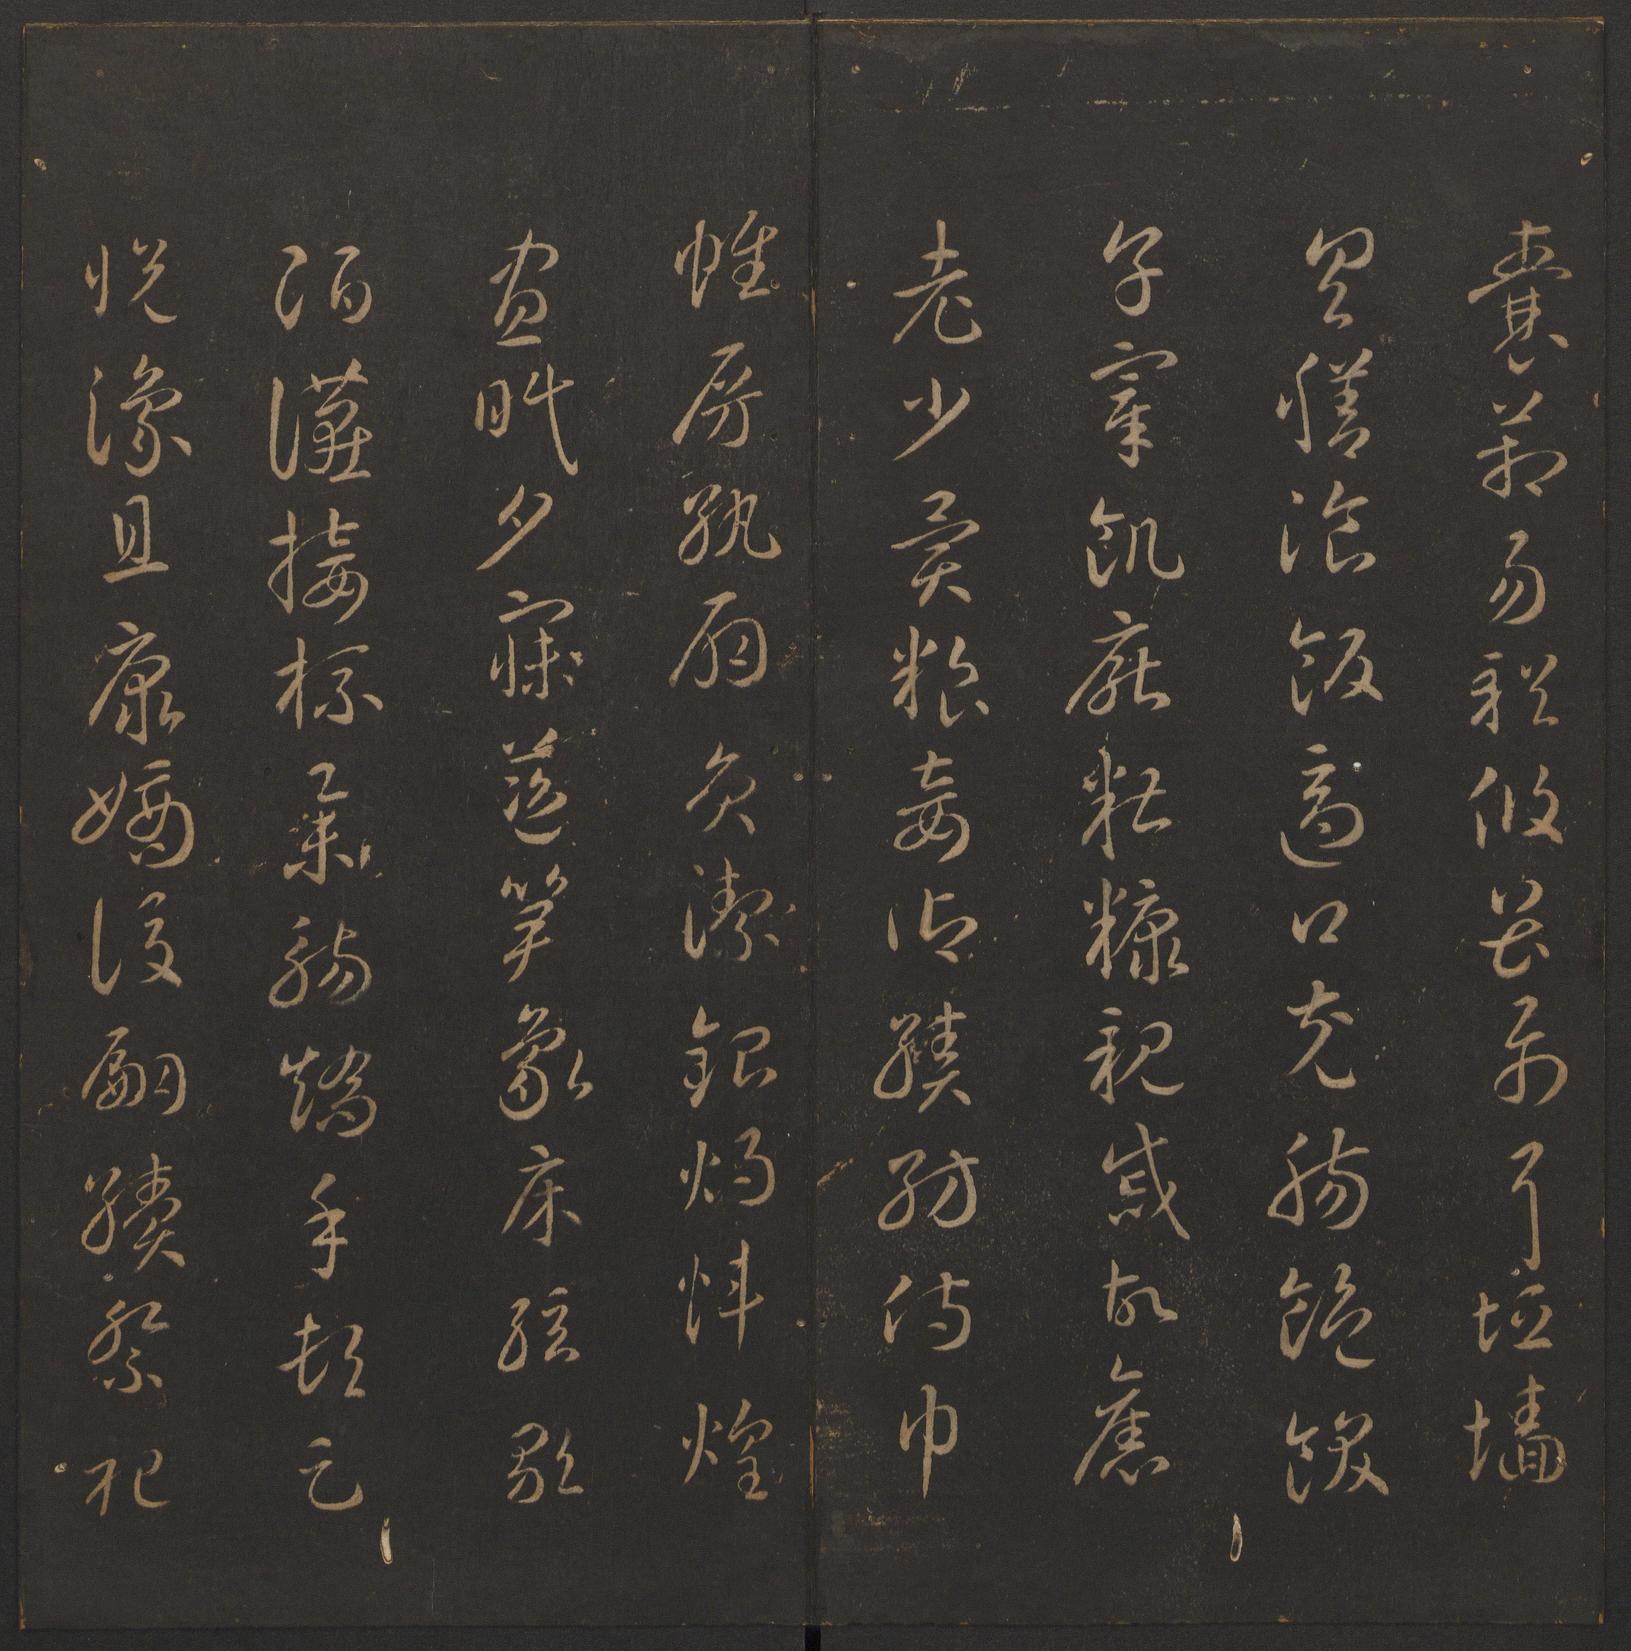 囊箱易輶攸畏屬耳垣墻
具膳飡飯適口充腸飽飫
烹宰飢厭糟糠親戚故舊
老少異粮妾御績紡侍巾
帷房紈扇員潔銀燭煒煌
晝眠夕寐藍笋象床絃歌
酒讌接杯舉觴矯手頓足
悅豫且康嫡後嗣續祭祀